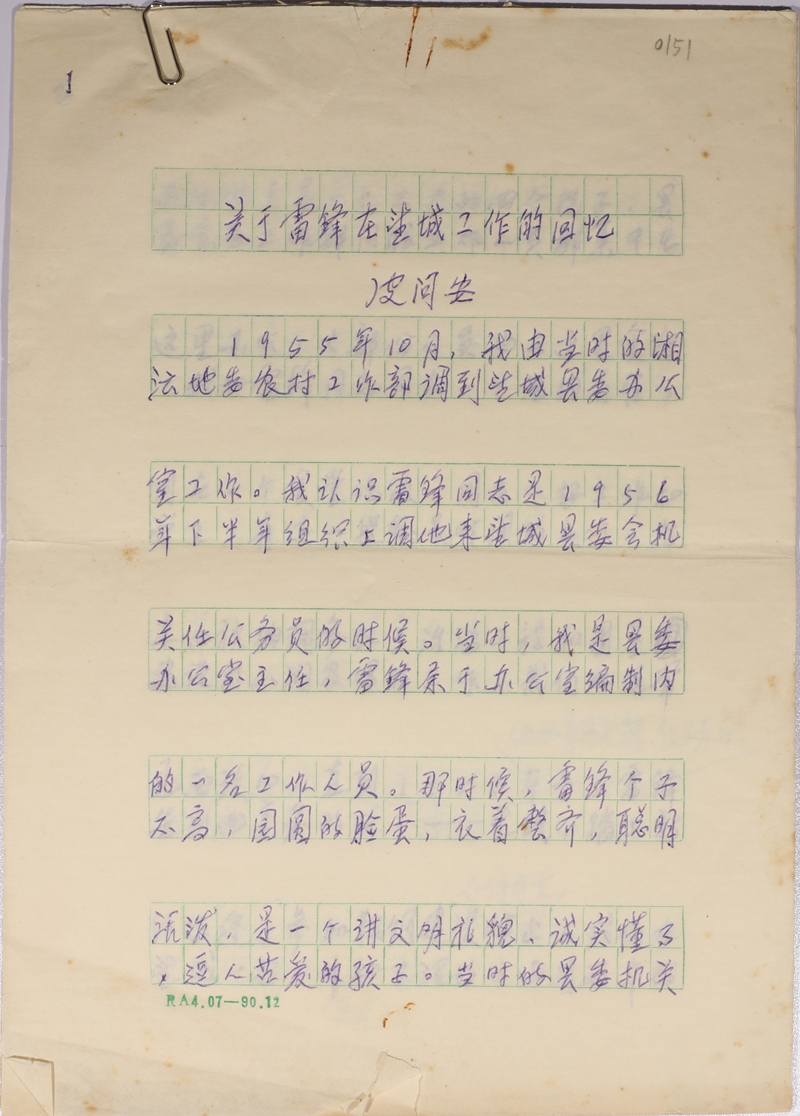 0151
1
关于雷锋在望城工作的回忆
皮问安
1955年10月，我由当时的湘
法地委农村工作部调到望城县委办公
室工作。我认识雷锋同志是1956
年下半年组织上调他来望城县委会机
关任公务员的时候。当时，我是县委
办公室主任，雷锋系于办公室编制内
的一名工作人员。那时候，雷锋个子
不高，圆圆的脸蛋，衣着整齐，聪明
活泼，是一个讲文明礼貌、诚实懂事
，逗人喜爱的孩子。当时的县委机关
RA4.07—90.12